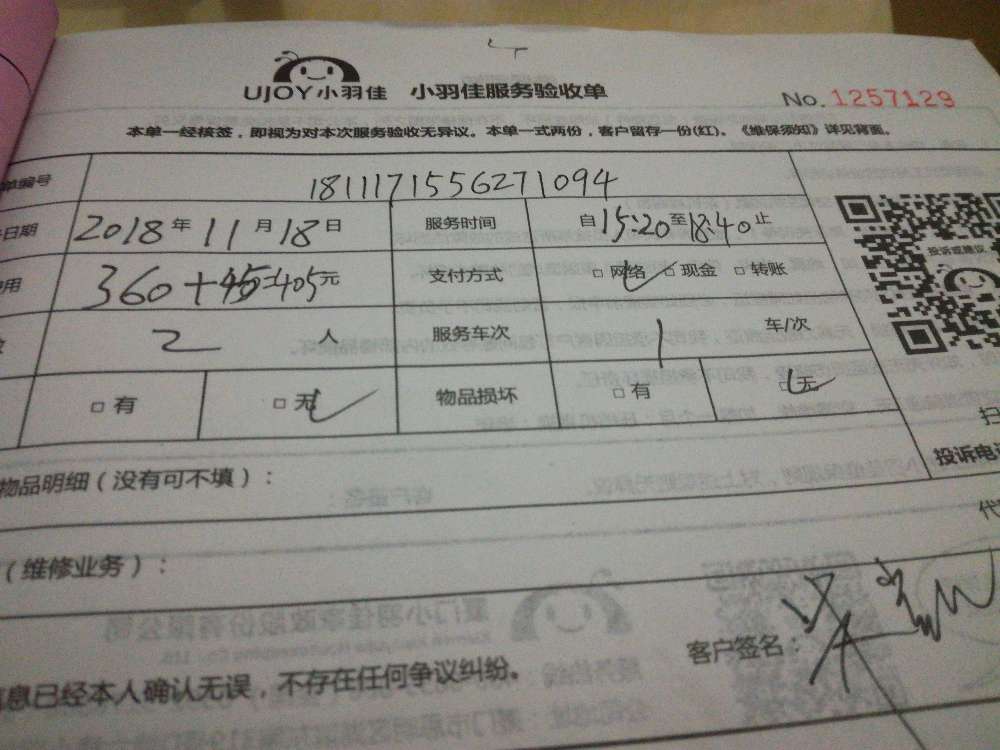 UJOY小羽佳 小羽佳服务验收单
No.1257129
本单一经核签，即视为对本次服务验收无异议。本单一式两份，客户留存一份(红)。《维保须知》详见背面。
单编号 1811171556271094
日期 2018年11月18日 服务时间 自15:20至18:40止
用 360+45=405元 支付方式 □网络 □现金 □转账
投诉或建议
2人 服务车次 1车/次
□有 □无 物品损坏 □有 □无
扫
投诉电
物品明细（没有可不填）：
代
（维修业务）：
客户签名：吴
息已经本人确认无误，不存在任何争议纠纷。